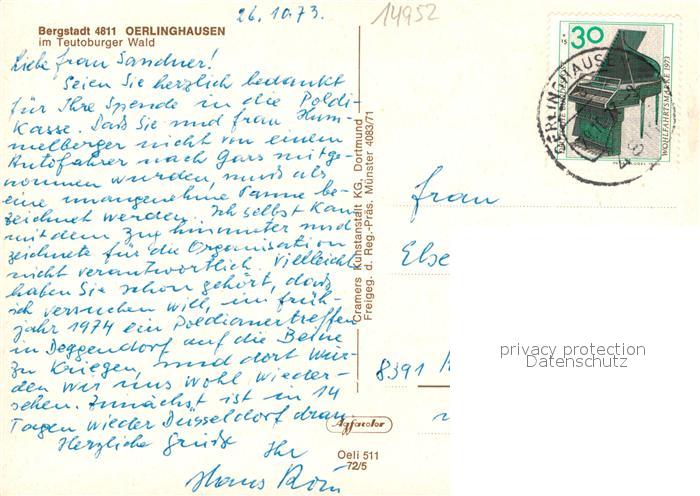 26.10.73.
14952
Bergstadt 4811 OERLINGHAUSEN
im Teutoburger Wald
Liebe Frau Sandner!
Seien Sie herzlich bedankt
für Ihre Spende in die Poldi-
Kasse. Daß Sie und Frau Hum-
melberger nicht von einem
Autofahrer nach Gars mitge-
nommen wurden, muß als
eine unangenehme Panne be-
zeichnet werden. Ich selbst kam
mit dem Zug hinunter und
zeichnete für die Organisation
nicht verantwortlich. Vielleicht
haben Sie schon gehört, daß
ich versuchen will, im Früh-
jahr 1974 ein Poldianertreffen
in Deggendorf auf die Beine
zu kriegen, und dort wür-
den wir uns wohl wieder-
sehen. Zunächst ist in 14
Tagen wieder Düsseldorf dran.
Herzliche Grüße
Ihr
Hans
Cramers Kunstanstalt KG, Dortmund
Freigeg. d. Reg.-Präs. Münster 4083/71
Agfacolor
Oeli 511
72/5
30
+15
WOHLFAHRTSMARKE 1973
OERLINGHAUSE
Frau
Else
8391
privacy protection
Datenschutz